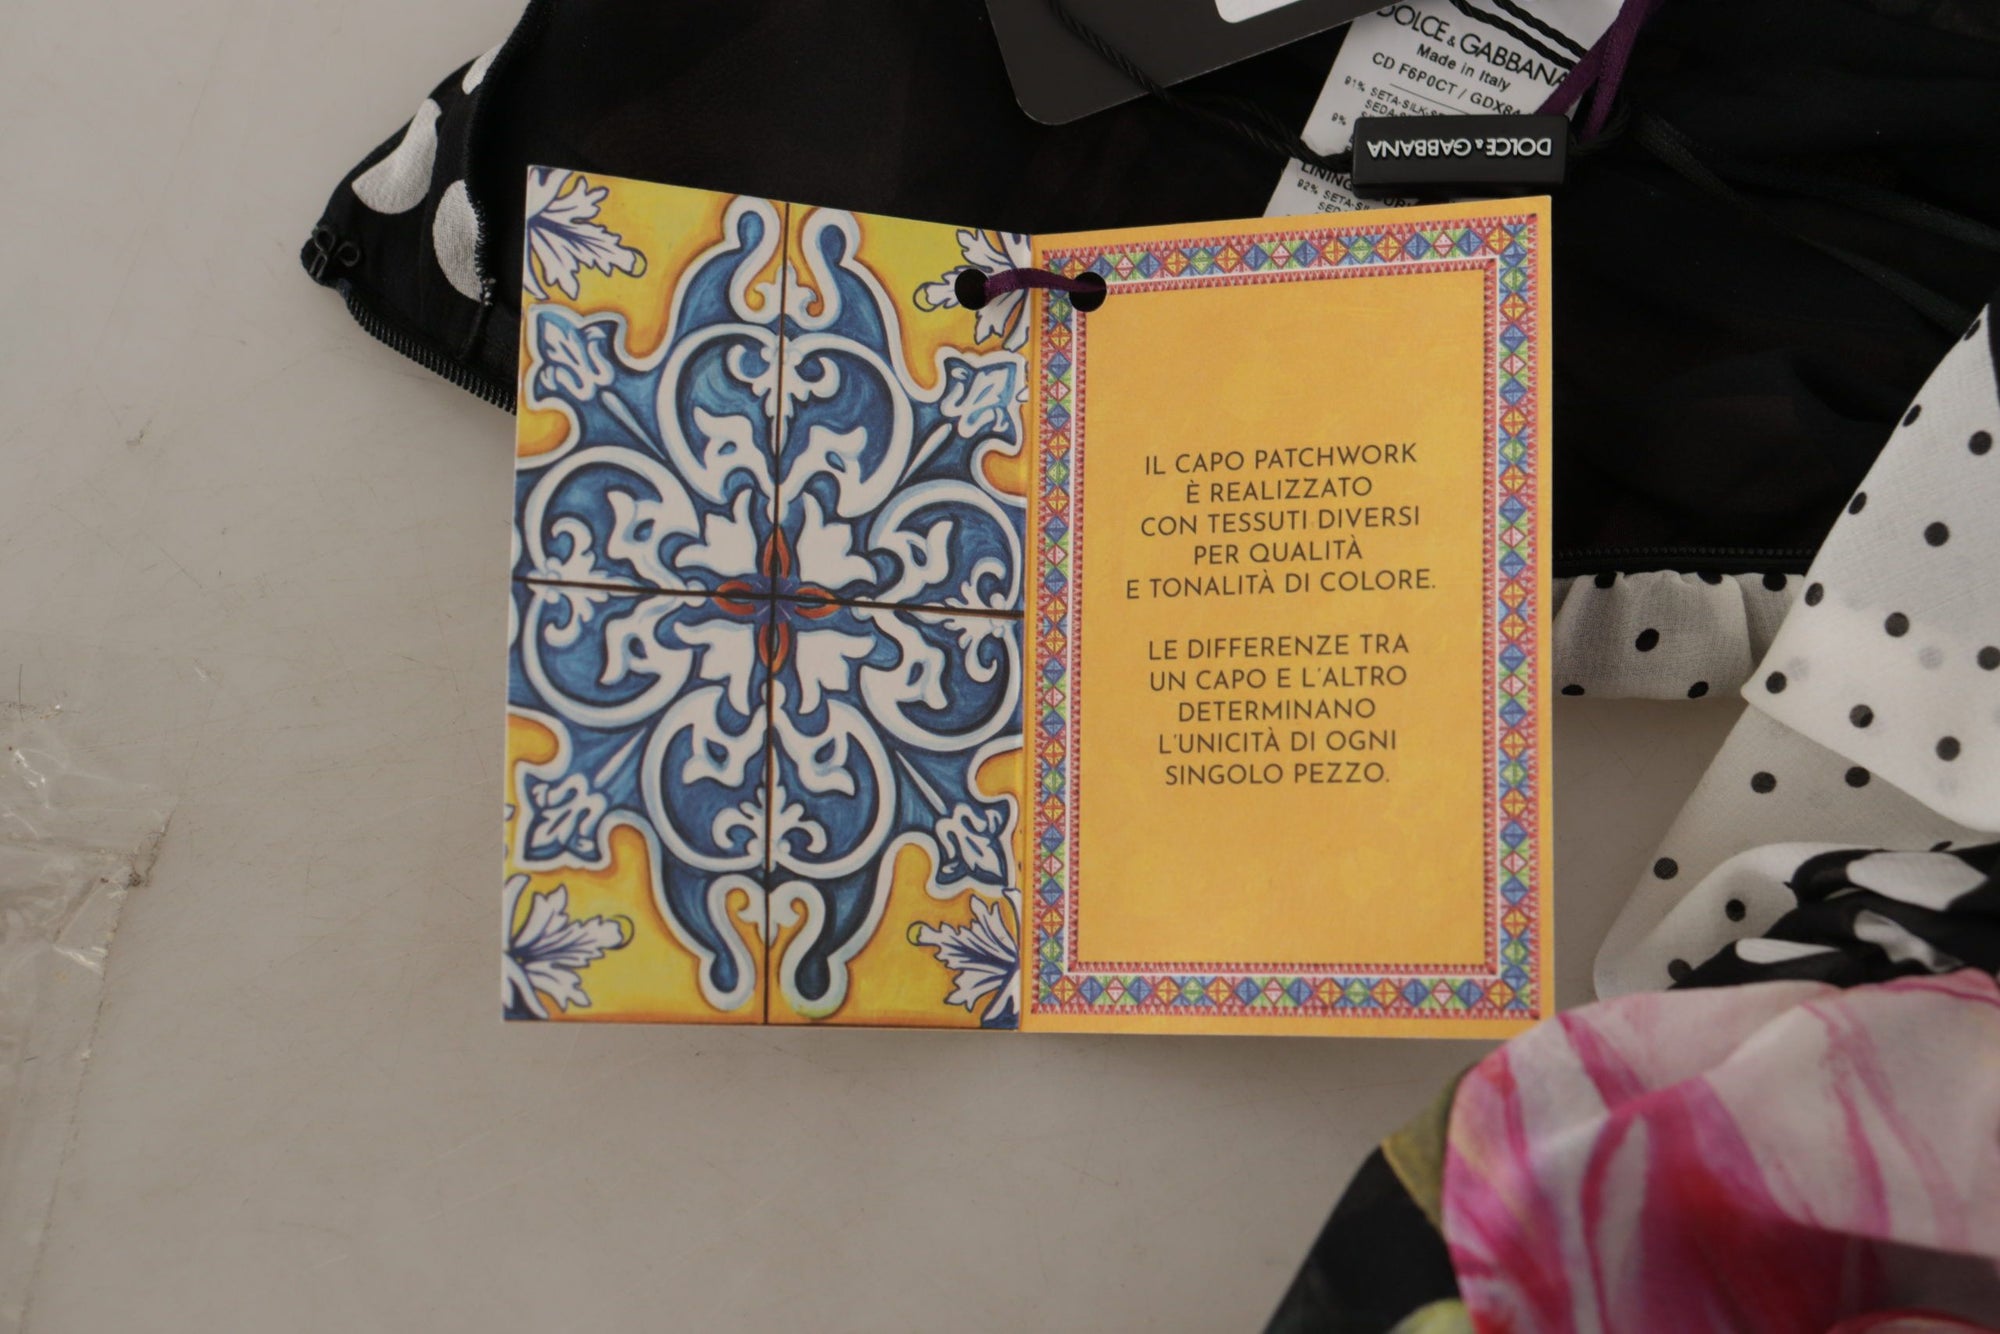 DOLCE & GABBANA
Made in Italy
CD F6P0CT / GDX8
91% SETA-SILK-
9%
LINING
92% SETA-
DOLCE & GABBANA
IL CAPO PATCHWORK
È REALIZZATO
CON TESSUTI DIVERSI
PER QUALITÀ
E TONALITÀ DI COLORE.
LE DIFFERENZE TRA
UN CAPO E L'ALTRO
DETERMINANO
L'UNICITÀ DI OGNI
SINGOLO PEZZO.